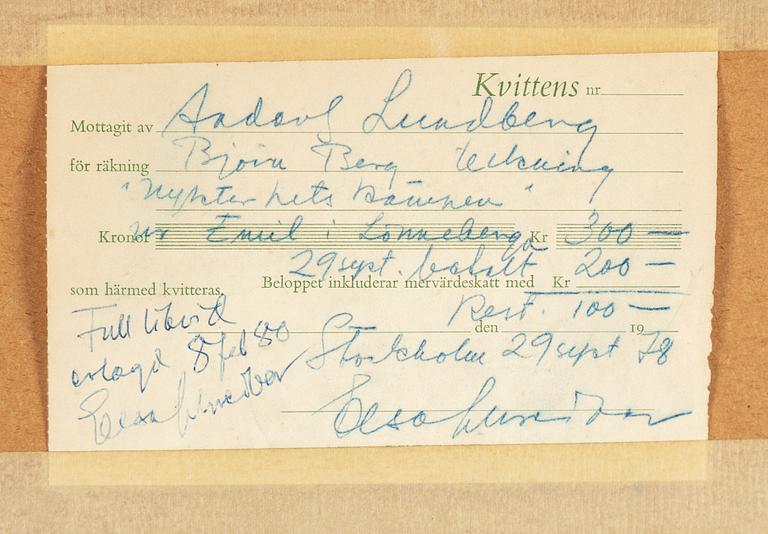 Kvittens nr
Mottagit av Lundberg
för räkning Björn Berg teckning
"Nykterhets kämpen"
Kronor ur Emil i Lönneberga Kr 300 —
29 sept. betalt 200 —
som härmed kvitteras. Beloppet inkluderar mervärdeskatt med Kr
Rest. 100 —
Full likvid
den 19
erlagd 8 feb 80 Stockholm 29 sept 78
Elsa
Elsa